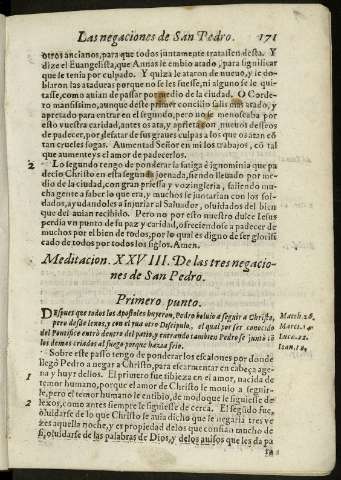 Las negaciones de San Pedro. 171
otros ancianos, para que todos juntamente tratassen desta. Y
dize el Euangelista, que Annas le embio atado, para significar
que le tenia por culpado. Y quiza le ataron de nueuo, y le do-
blaron las ataduras porque no se les fuesse, ni alguno se le qui-
tasse, como auian de passar por medio de la ciudad. O Corde-
ro mansissimo, aunque deste primer concilio salis atado, y
apretado para entrar en el segundo, pero no se menoscaba por
esto vuestra caridad, antes os ata, y aprieta con nueuos desseos
de padecer, por desatar de sus graues culpas a los que os atan cō
tan crueles sogas. Aumentad Señor en mi los trabajos, cō tal
que aumenteys el amor de padecerlos.
2 Lo segundo tengo de ponderar la fatiga è ignominia que pa
decio Christo en esta segunda jornada, siendo lleuado por me-
dio de la ciudad, con gran priessa y vozingleria, saliendo mu-
cha gente a saber lo que era, y muchos se juntarian con los sol-
dados, ayudandolos a injuriar al Saluador, oluidados del bien
que del auian recibido. Pero no por esto nuestro dulce Iesus
perdia vn punto de su paz y caridad, ofreciendose a padecer de
muchos por el bien de todos, por lo qual es digno de ser glorifi
cado de todos por todos los siglos. Amen.
Meditacion. XXVIII. De las tres negacio-
nes de San Pedro.
Primero punto.
DEspues que todos los Apostoles huyeron, Pedro boluio a seguir a Christo, Matth. 26.
pero desde lexos, y con el yua otro Discipulo, el qual por ser conocido Marc. 14.
del Pontifice entrò dentro del patio, y entrando tambien Pedro se juntò cō Luc. 22.
los demas criados al fuego porque hazia frio. Ioan. 18.
Sobre este passo tengo de ponderar los escalones por donde
1 llegò Pedro a negar a Christo, para escarmentar en cabeça age-
na y huyr dellos. El primero fue tibieza en el amor, nacida de
temor humano, porque el amor de Christo le mouio a seguir-
le, pero el temor humano le entibio, de modo que le siguiesse de
2 lexos, como antes siempre le siguiesse de cerca. El segūdo fue,
oluidarse de lo que Christo le auia dicho que le negaria tres ve
zes aquella noche, y es propiedad delos que confian mucho de
si, oluidarse de las palabras de Dios, y delos auisos que les da pa